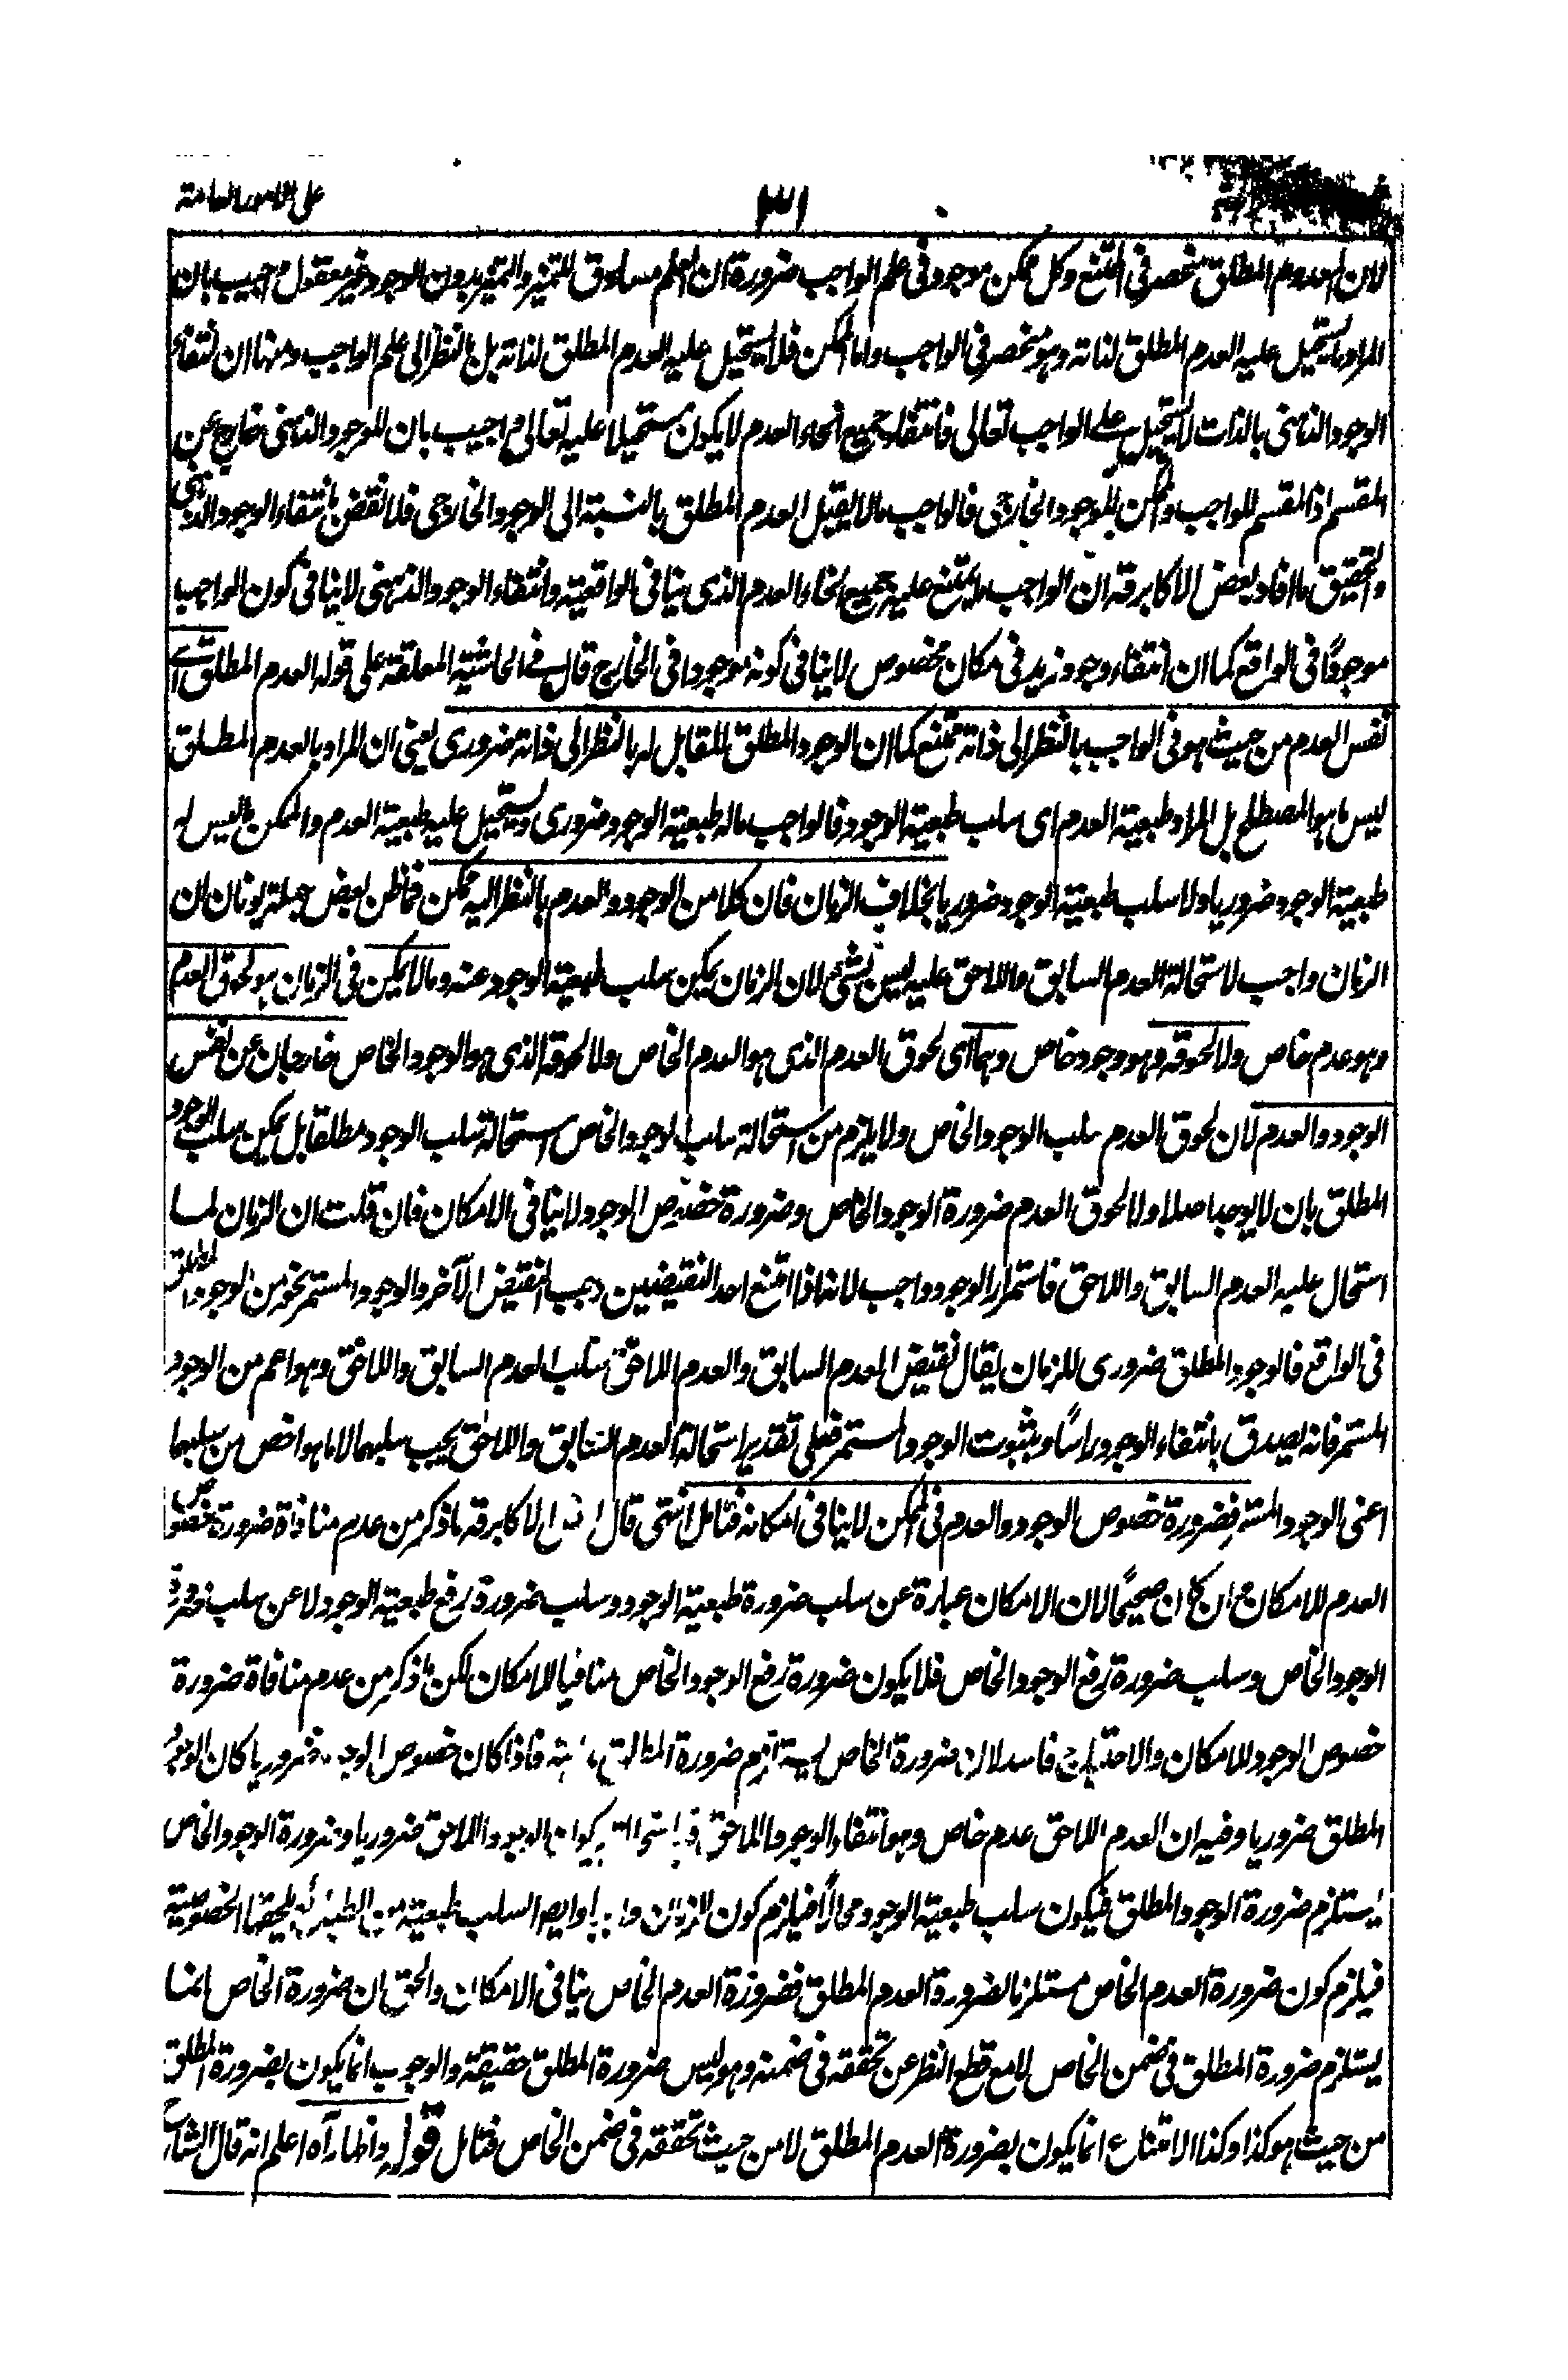 على الامور العامة
١٣١
لان المعدوم المطلق منحصر فى الممتنع وكل ممكن موجود فى علم الواجب ضرورة ان العلم مساوق للتميز والتميز بدون الوجود غير معقول م اجيب بان
المراد ما يستحيل عليه العدم المطلق لذاته وهو منحصر فى الواجب واما الممكن فلا يستحيل عليه العدم المطلق لذاته بل بالنظر الى علم الواجب ومنها ان انتفاء
الوجود الذهنى بالذات لا يستحيل على الواجب تعالى فانتفاء جميع انحاء العدم لا يكون مستحيلا عليه تعالى م اجيب بان الموجود الذهنى خارج عن
المقسم اذ المقسم للواجب والممكن الموجود الخارجى فالواجب ما لا يقبل العدم المطلق بالنسبة الى الوجود الخارجى فلا نقض بانتفاء الوجود الذهنى
والتحقيق ما افاد بعض الاكابر قه ان الواجب ما يمتنع عليه جميع انحاء العدم الذى ينافى الواقعية وانتفاء الوجود الذهنى لا ينافى كون الواجب
موجودًا فى الواقع كما ان انتفاء وجود زيد فى مكان مخصوص لا ينافى كونه موجودا فى الخارج قال فى الحاشية المعلقة على قوله العدم المطلق اے
نفس العدم من حيث هو فى الواجب بالنظر الى ذاته ممتنع كما ان الوجود المطلق المقابل له بالنظر الى ذاته ضرورى يعنى ان المراد بالعدم المطلق
ليس ما هو المصطلح بل المراد طبعية العدم اى سلب طبعية الوجود فالواجب ماله طبعية الوجود ضرورى ويستحيل عليه طبعية العدم والممكن ما ليس له
طبعية الوجود ضروريا ولا سلب طبعية الوجود ضروريا بخلاف الزمان فان كلا من الوجود والعدم بالنظر اليه ممكن فما ظن بعض جهلة يونان ان
الزمان واجب لاستحالة العدم السابق واللاحق عليه ليس بشئ لان الزمان يمكن سلب طبعية الوجود عنه وما لا يمكن فى الزمان هو لحوق العدم
وهو عدم خاص ولا لحوقه وهو وجود خاص وهما اى لحوق العدم الذى هو العدم الخاص ولا لحوقه الذى هو الوجود الخاص خارجان عن نفس
الوجود والعدم لان لحوق العدم سلب الوجود الخاص ولا يلزم من استحالة سلب الوجود الخاص استحالة سلب الوجود مطلقا بل يمكن سلب الوجود
المطلق بان لا يوجد اصلا ولا لحوق العدم ضرورة الوجود الخاص وضرورة خصوص الوجود لا ينافى الامكان فان قلت ان الزمان لما
استحال عليه العدم السابق واللاحق فاستمرار الوجود واجب لانه اذا امتنع احد النقيضين وجب النقيض الآخر والوجود المستمر نحو من الوجود المطلق
فى الواقع فالوجود المطلق ضرورى للزمان يقال نقيض العدم السابق والعدم اللاحق سلب العدم السابق واللاحق وهو اعم من الوجود
المستمر فانه يصدق بانتفاء الوجود راسًا وبثبوت الوجود المستمر فعلى تقدير استحالة العدم السابق واللاحق يجب سلبهما لا ما هو اخص من سلبهما
اعنى الوجود المستمر فضرورة خصوص الوجود والعدم فى الممكن لا ينافى امكانه فتامل انتهى قال الاكابر قه ما ذكر من عدم منافاة ضرورة خصوص
العدم للامكان م ان كان صحيحًا لان الامكان عبارة عن سلب ضرورة طبعية الوجود وسلب ضرورة رفع طبعية الوجود لا عن سلب ضرورة
الوجود الخاص وسلب ضرورة رفع الوجود الخاص فلا يكون ضرورة رفع الوجود الخاص منافيا للامكان لكن ما ذكر من عدم منافاة ضرورة
خصوص الوجود للامكان والاحتياج فاسد لان ضرورة الخاص يستلزم ضرورة المطلق فاذا كان خصوص الوجود ضروريا كان الوجود
المطلق ضروريا وفيه ان العدم اللاحق عدم خاص وهو انتفاء الوجود اللاحق الوجود اللاحق ضروريا وضرورة الوجود الخاص
يستلزم ضرورة الوجود المطلق فيكون سلب طبعية الوجود محالًا فيلزم كون الزمان وايضا السلب طبعية من تلحقها الخصوصية
فيلزم كون ضرورة العدم الخاص مستلزما لضرورة العدم المطلق فضرورة العدم الخاص ينافى الامكان والحق ان ضرورة الخاص انما
يستلزم ضرورة المطلق فى ضمن الخاص لا مع قطع النظر عن تحققه فى ضمنه وهو ليس ضرورة المطلق حقيقة والوجوب انما يكون بضرورة المطلق
من حيث هو كذا وكذا الامتناع انما يكون بضرورة العدم المطلق لا من حيث تحققه فى ضمن الخاص فتامل قوله واظهاره آه اعلم انه قال الشارح